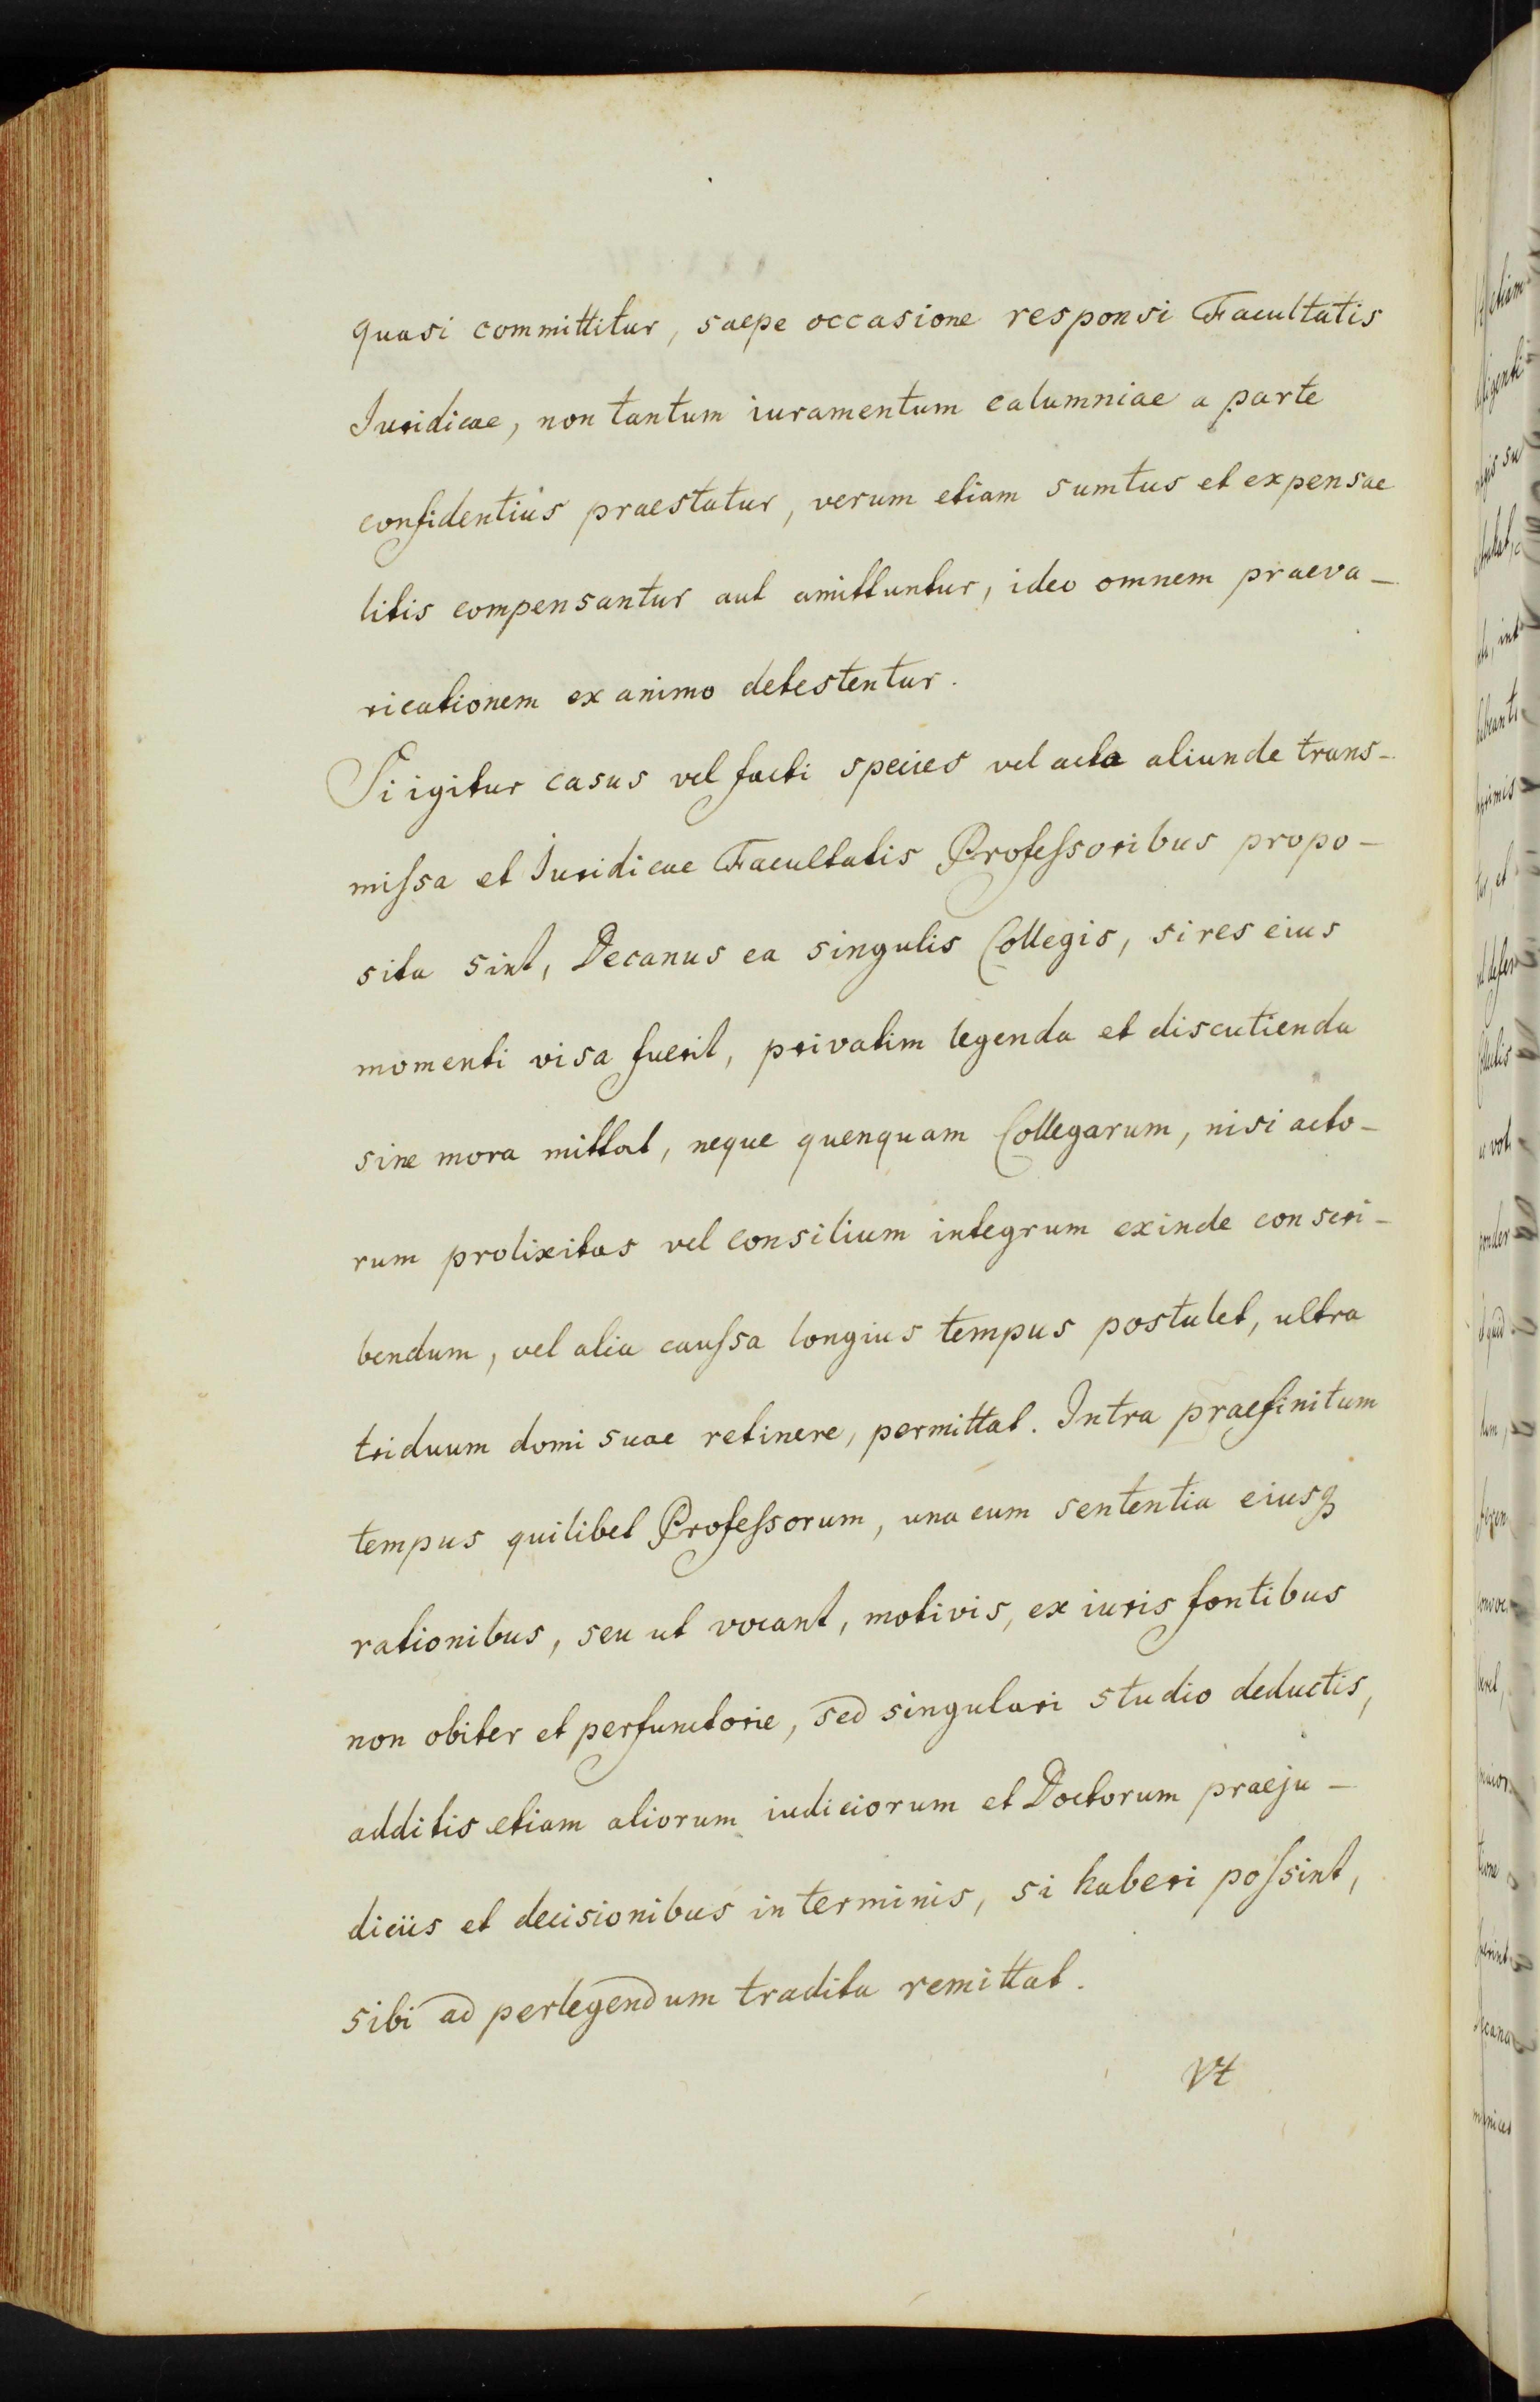 quasi committitur, saepe occasione responsi Facultatis
Iuridicae, non tantum iuramentum calumniae a parte
confidentius praestatur, verum etiam sumtus et expensae
litis compensantur aut amittuntur, ideo omnem praeva-
ricationem ex animo detestentur.
Si igitur casus vel facti species vel acta aliunde trans-
miſsa et Iuridicae Facultatis Profeſsoribus propo-
sita sint, Decanus ea singulis Collegis, si res eius
momenti visa fuerit, privatim legenda et discutienda
sine mora mittat, neque quenquam Collegarum, nisi acto-
rum prolixitas vel consilium integrum exinde conscri-
bendum, vel alia cauſsa longius tempus postulet, ultra
triduum domi suae retinere, permittat. Intra praefinitum
tempus quilibet Profeſsorum, una cum sententia eiusꝙ
rationibus, seu ut vocant, motivis, ex iuris fontibus
non obiter et perfunctorie, sed singulari studio deductis,
additis etiam aliorum iudiciorum et Doctorum praeju-
diciis et decisionibus in terminis, si haberi poſsint,
sibi ad perlegendum tradita remittat.
Vt